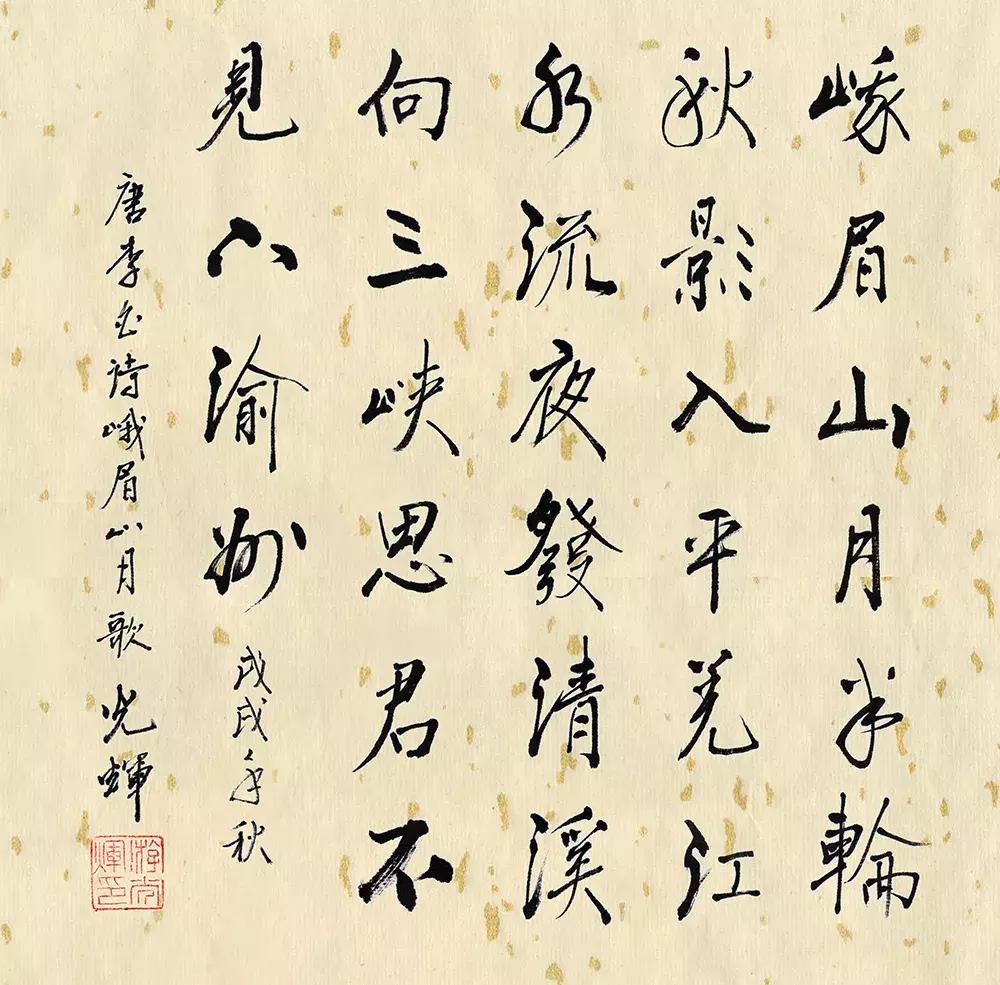 峨眉山月半輪
秋影入平羌江
水流夜發清溪
向三峽思君不
見下渝州
戊戌年秋
唐李白詩峨眉山月歌 光輝